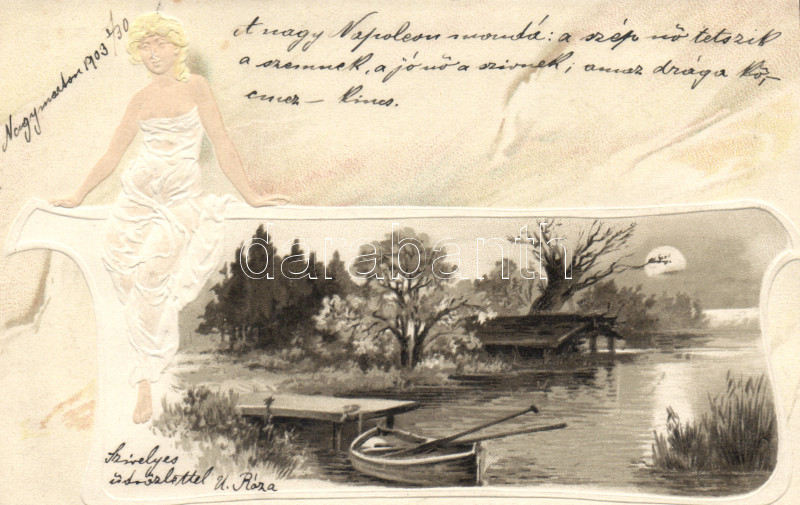 Nagymaros 1903 5/30
A nagy Napoleon mondá: a szép nő tetszik
a szemnek, a jó nő a szivnek; amaz drága kő,
emez – kincs.
darabanth
Szivelyes
üdvözlettel U. Róza